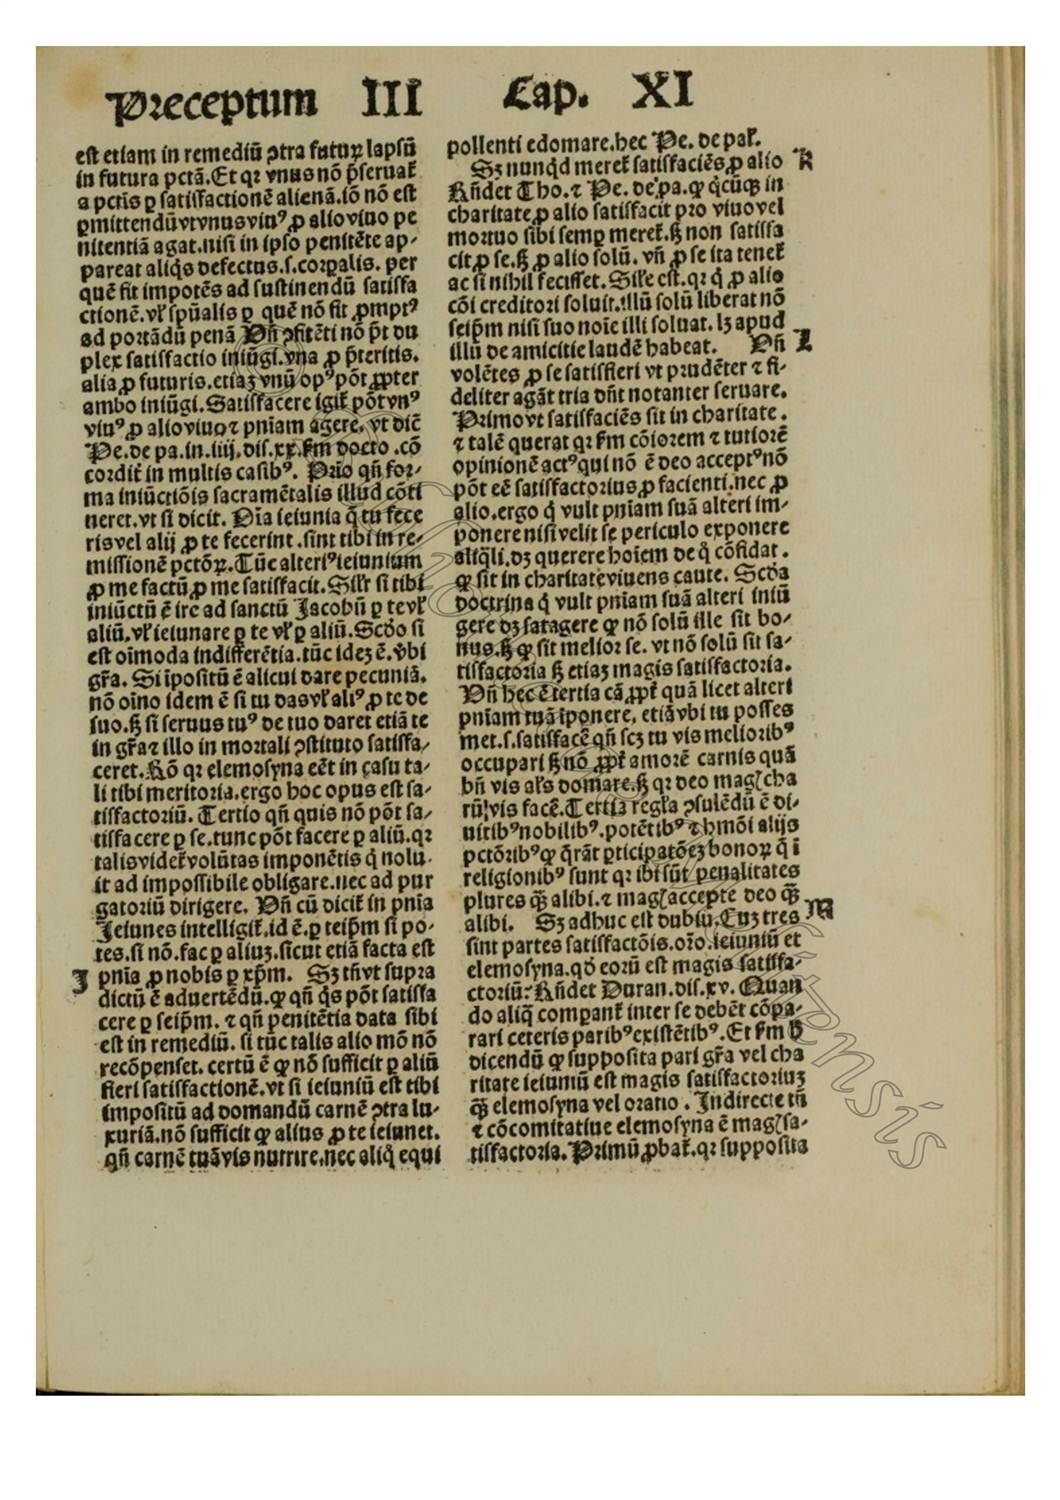 Preceptum III Cap. XI
est etiam in remediũ ↄtra futuꝝ lapsũ
in futura pctã. Et qꝛ vnus nõ p̃seruat᷑
a pctis ꝑ satisfactionẽ alienã. iõ nõ est
ꝑmittendũ vt vnus viuꝰ ꝓ alio viuo pe
nitentiã agat. nisi in ipso penitẽte ap-
pareat aliq̃s defectus. s. corꝑalis. per
quẽ fit impotẽs ad sustinendũ satisfa
ctionẽ. vl̓ spũalis ꝑ quẽ nõ fit ꝓmptꝰ
ad portãdũ penã Vñ ↄfitẽti nõ p̃t du
plex satisfactio iniũgi. vna ꝓ p̃teritis.
alia ꝓ futuris. etiaʒ vnũ opꝰ põt ꝓpter
ambo iniũgi. Satisfacere igit᷑ põt vnꝰ
viuꝰ ꝓ alio viuo ⁊ pniam agere. vt dic̃
Pe. de pa. in. iiij. dis. xx. fm docto. cõ
cordit̃ in multis casibꝰ. Prio qñ for-
ma iniũctiõis sacramẽtalis illud cõti
neret. vt si dicit. Oia ieiunia q̃ tu fece
ris vel alij ꝓ te fecerint. sint tibi in re-
missionẽ pctõꝝ. Tũc alteriꝰ ieiunium
ꝓ me factũ ꝓ me satisfacit. Silr̃ si tibi
iniũctũ ẽ ire ad sanctũ Jacobũ ꝑ te vl̓
aliũ. vl̓ ieiunare ꝑ te vl̓ ꝑ aliũ. Scďo si
est oĩmoda indifferẽtia. tũc ideʒ ẽ. v̓bi
gr̃a. Si ĩpositũ ẽ alicui dare pecuniã.
nõ oĩno idem ẽ si tu das vl̓ aliꝰ ꝓ te de
suo. ꝫ si seruus tuꝰ de tuo daret etiã te
in gr̃a ⁊ illo in mortali ↄstituto satisfa-
ceret. Rõ qꝛ elemosyna eẽt in casu ta-
li tibi meritoria. ergo hoc opus est sa-
tisfactoriũ. Tertio qñ quis nõ põt sa-
tisfacere ꝑ se. tunc põt facere ꝑ aliũ. qꝛ
talis videt᷑ volũtas imponẽtis q̃ nolu-
it ad impossibile obligare. nec ad pur
gatoriũ dirigere. Vñ cũ dicit᷑ in pnia
Jeiunes intelligit᷑. id ẽ. ꝑ teip̃m si po-
tes. si nõ. fac ꝑ aliuʒ. sicut etiã facta est
J pnia ꝓ nobis ꝑ xp̃m. Sʒ tñ vt supra
dictũ ẽ aduertẽdũ. ꝙ qñ q̃s põt satisfa
cere ꝑ seip̃m. ⁊ qñ penitẽtia data sibi
est in remediũ. si tũc talis alio mõ nõ
recõpenset. certũ ẽ ꝙ nõ sufficit ꝑ aliũ
fieri satisfactionẽ. vt si ieiuniũ est tibi
impositũ ad domandũ carnẽ ↄtra lu-
xuriã. nõ sufficit ꝙ alius ꝓ te ieiunet.
qñ carnẽ tuã vis nutrire. nec aliq̃ equi
pollenti edomare. hec Pe. de pal̓.
Sʒ nunq̃d meret᷑ satisfaciẽs ꝓ alio K
Rñdet Tho. ⁊ Pe. de pa. ꝙ q̃cũqꝫ in
charitate ꝓ alio satisfacit pro viuo vel
mortuo sibi semꝑ meret᷑. ꝫ non satisfa
cit ꝓ se. ꝫ ꝓ alio solũ. vñ ꝓ se ita tenet᷑
ac si nihil fecisset. Sil̓e est. qꝛ q̃ ꝓ alio
cõi creditori soluit. illũ solũ liberat nõ
seip̃m nisi suo noĩe illi soluat. lʒ apud
illũ de amicitie laudẽ habeat. Vñ L
volẽtes ꝓ se satisfieri vt prudẽter ⁊ fi-
deliter agãt tria dñt notanter seruare.
Primo vt satisfaciẽs sit in charitate.
⁊ talẽ querat qꝛ fm cõiorem ⁊ tutiorẽ
opinionẽ actꝰ qui nõ ẽ deo acceptꝰ nõ
põt eẽ satisfactorius ꝓ facienti. nec ꝓ
alio. ergo q̃ vult pniam suã alteri im-
ponere nisi velit se periculo exponere
aliq̃li. dʒ querere hoĩem de q̃ cõfidat.
ꝙ sit in charitate viuens caute. Scďa
doctrina q̃ vult pniam suã alteri iniũ
gere dʒ satagere ꝙ nõ solũ ille sit bo-
nus. ꝫ ꝙ sit melior se. vt nõ solũ sit sa-
tisfactoria ꝫ etiaʒ magis satisfactoria.
Vñ hec ẽ tertia cã ꝓpt̃ quã licet alteri
pniam tuã ĩponere, etiã vbi tu posses
met. s. satisfacẽ qñ scʒ tu vis melioribꝰ
occupari ꝫ nõ ꝓpt̃ amorẽ carnis quã
bñ vis al̓s domare. ꝫ qꝛ deo magꝭ cha
rũ vis facẽ. Tertia regl̓a ↄsulẽdũ ẽ di-
uitibꝰ nobilibꝰ. potẽtibꝰ ⁊ hmõi alijs
pctõribꝰ ꝙ q̃rãt ꝑticipatõeʒ bonoꝝ q̃ ĩ
religionibꝰ sunt qꝛ ibi sũt penalitates
plures q̃ꝫ alibi. ⁊ magꝭ accepte deo q̃ꝫ
alibi. Sʒ adhuc est dubiũ. Cuʒ tres M
sint partes satisfactõis. or̃o. ieiuniũ et
elemosyna. qď eorũ est magis satisfa-
ctoriũ: Rñdet Duran. dis. xv. Quan
do aliq̃ comparant᷑ inter se debẽt cõpa-
rari ceteris paribꝰ existẽtibꝰ. Et fm h̓
dicendũ ꝙ supposita pari gr̃a vel cha
ritate ieiuniũ est magis satisfactoriuʒ
q̃ꝫ elemosyna vel oratio. Indirecte tñ
⁊ cõcomitatiue elemosyna ẽ magꝭ sa-
tisfactoria. Primũ ꝓbat᷑. qꝛ supposita